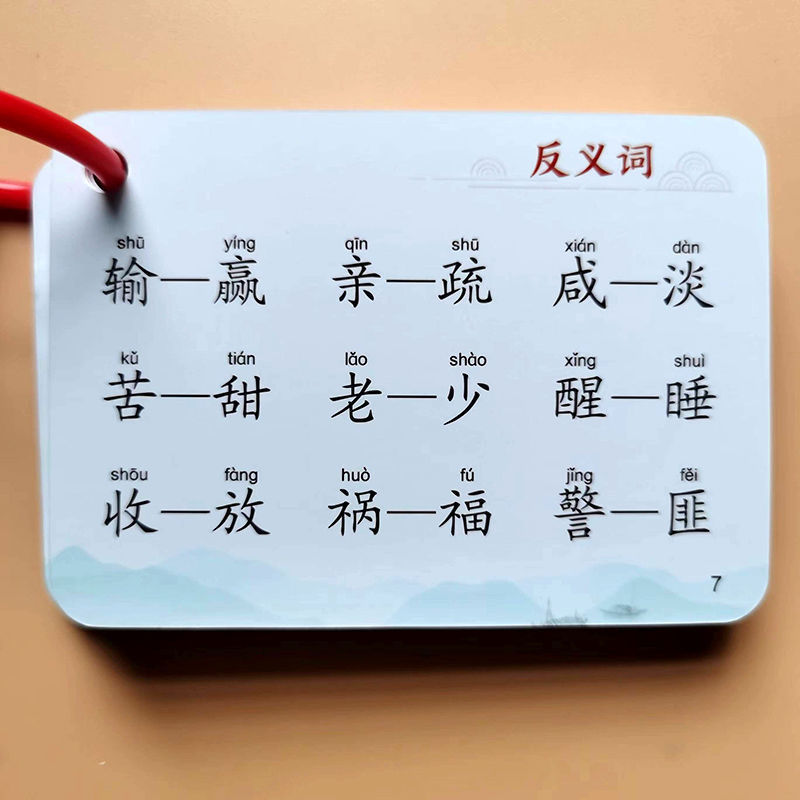 反义词
shū yíng qīn shū xián dàn
输—赢 亲—疏 咸—淡
kǔ tián lǎo shào xǐng shuì
苦—甜 老—少 醒—睡
shōu fàng huò fú jǐng fěi
收—放 祸—福 警—匪
7